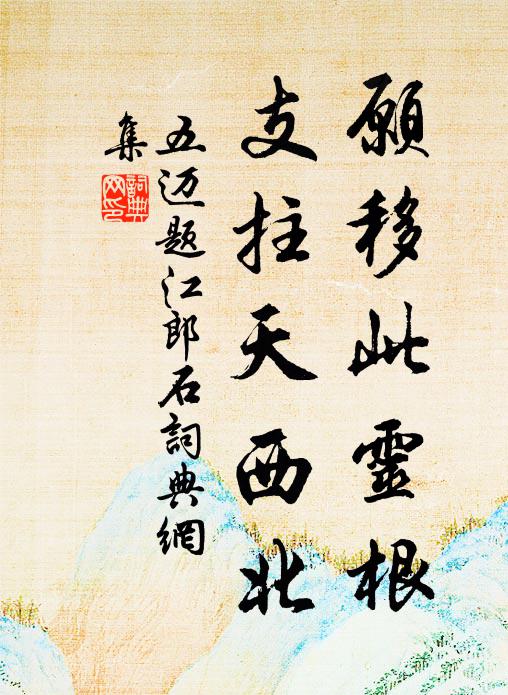 願移此靈根
支拄天西北
五迈题江郎石詞典網
集
詞典
网印